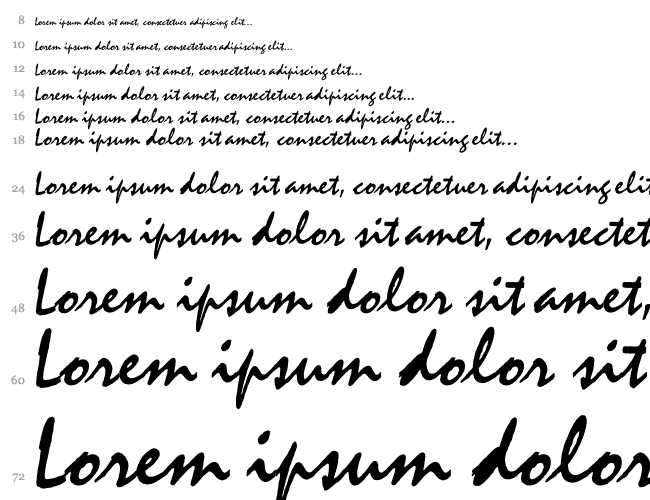 8 Lorem ipsum dolor sit amet, consectetuer adipiscing elit...
10 Lorem ipsum dolor sit amet, consectetuer adipiscing elit...
12 Lorem ipsum dolor sit amet, consectetuer adipiscing elit...
14 Lorem ipsum dolor sit amet, consectetuer adipiscing elit...
16 Lorem ipsum dolor sit amet, consectetuer adipiscing elit...
18 Lorem ipsum dolor sit amet, consectetuer adipiscing elit...
24 Lorem ipsum dolor sit amet, consectetuer adipiscing elit
36 Lorem ipsum dolor sit amet, consectet
48 Lorem ipsum dolor sit amet,
60 Lorem ipsum dolor sit
72 Lorem ipsum dolor